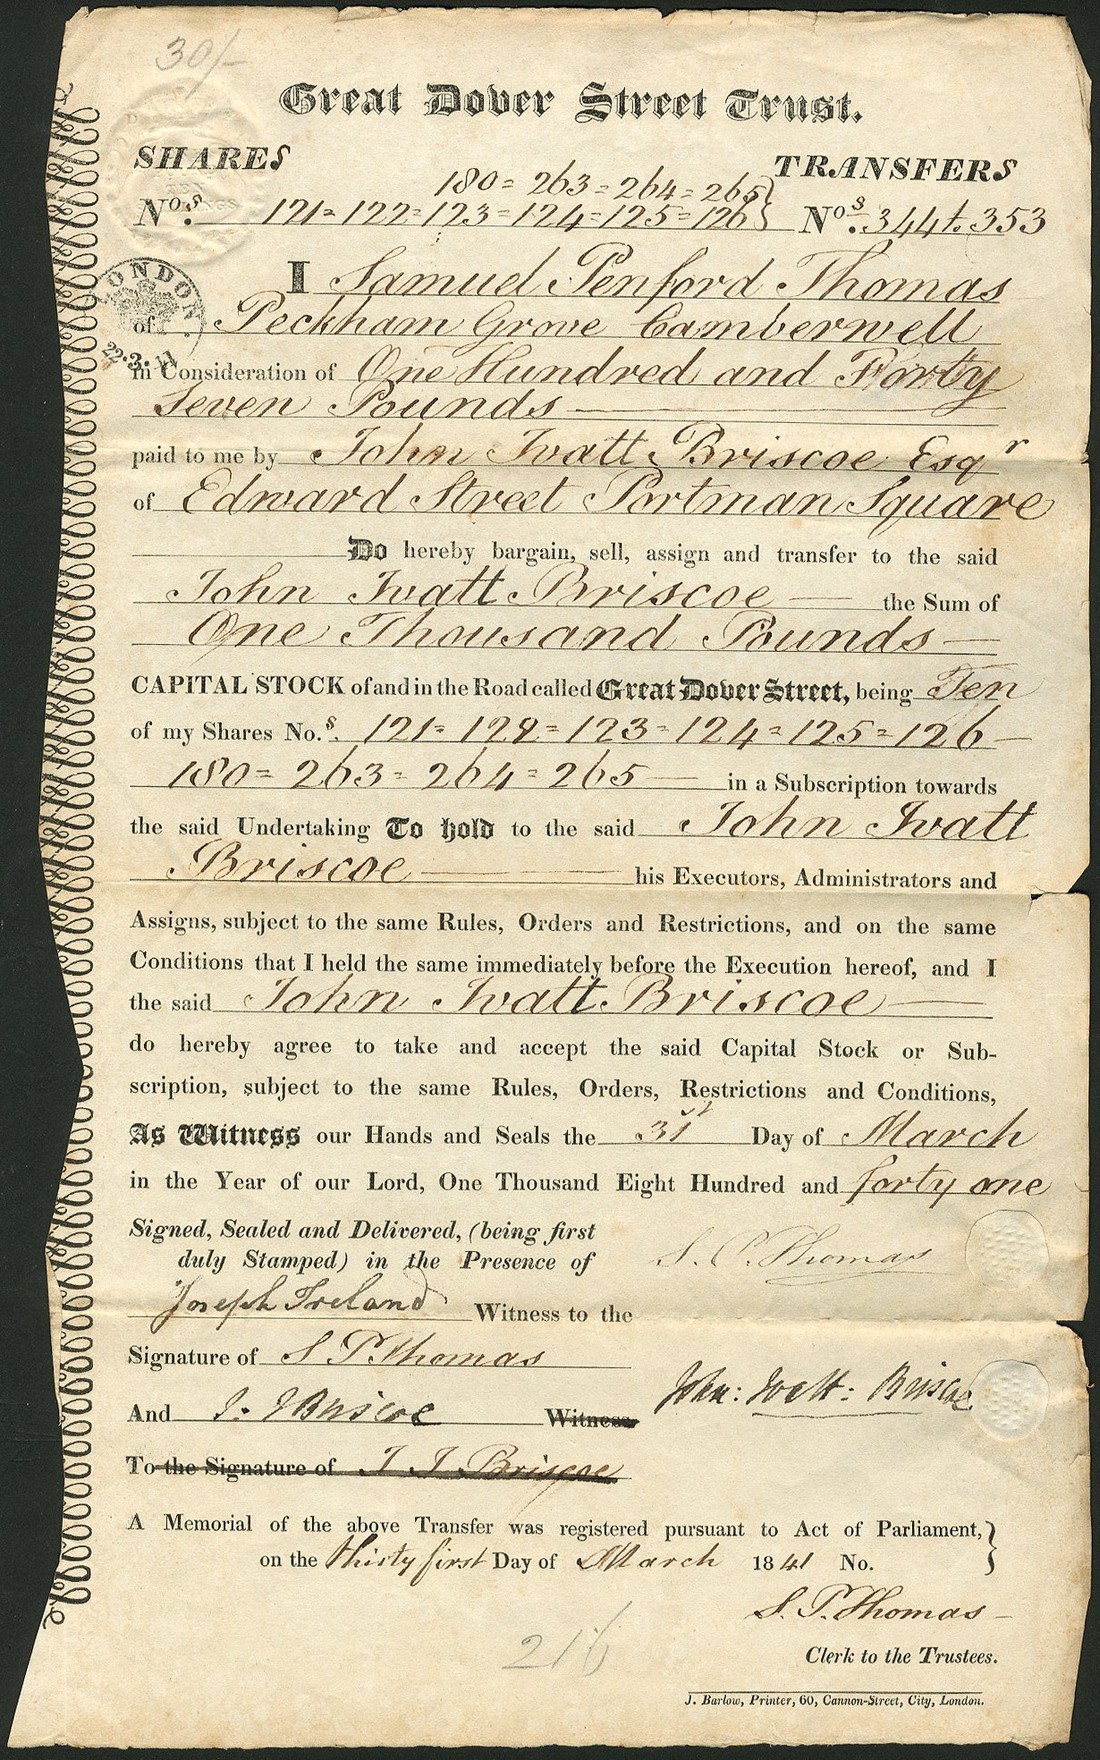 30/-
Great Dover Street Trust.
SHARES TRANSFERS
180 = 263 = 264 = 265 }
No.s 121 = 122 = 123 = 124 = 125 = 126 } Nos. 344 t. 353
LONDON
22.3.41
I Samuel Penford Thomas
of Peckham Grove Camberwell
in Consideration of One Hundred and Forty
Seven Pounds
paid to me by John Ivatt Briscoe Esqr
of Edward Street Portman Square
Do hereby bargain, sell, assign and transfer to the said
John Ivatt Briscoe — the Sum of
One Thousand Pounds —
CAPITAL STOCK of and in the Road called Great Dover Street, being Ten
of my Shares No.s. 121 = 122 = 123 = 124 = 125 = 126 —
180 = 263 = 264 = 265 — in a Subscription towards
the said Undertaking To hold to the said John Ivatt
Briscoe — his Executors, Administrators and
Assigns, subject to the same Rules, Orders and Restrictions, and on the same
Conditions that I held the same immediately before the Execution hereof, and I
the said John Ivatt Briscoe —
do hereby agree to take and accept the said Capital Stock or Sub-
scription, subject to the same Rules, Orders, Restrictions and Conditions,
As Witness our Hands and Seals the 31st Day of March
in the Year of our Lord, One Thousand Eight Hundred and forty one
Signed, Sealed and Delivered, (being first
duly Stamped) in the Presence of S. P. Thomas
Joseph Ireland Witness to the
Signature of S P Thomas
John: Ivatt: Briscoe
And J. I Briscoe Witness
To the Signature of J I Briscoe
A Memorial of the above Transfer was registered pursuant to Act of Parliament, }
on the thirty first Day of March 1841 No. }
S. P. Thomas —
Clerk to the Trustees.
216
J. Barlow, Printer, 60, Cannon-Street, City, London.